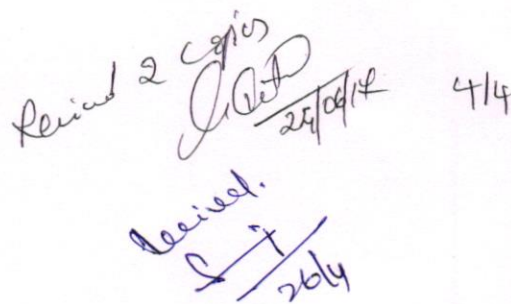 Received 2 Copies
25/04/17
4/4
Received.
26/4